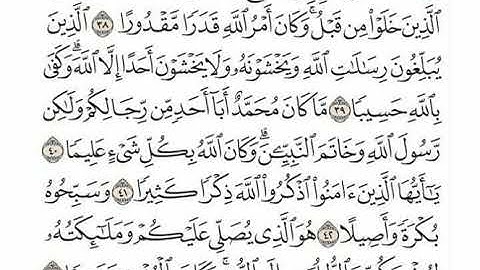 ٱلَّذِينَ خَلَوْا۟ مِن قَبْلُ ۚ وَكَانَ أَمْرُ ٱللَّهِ قَدَرًا مَّقْدُورًا ٣٨ ٱلَّذِينَ
يُبَلِّغُونَ رِسَٰلَٰتِ ٱللَّهِ وَيَخْشَوْنَهُۥ وَلَا يَخْشَوْنَ أَحَدًا إِلَّا ٱللَّهَ ۗ وَكَفَىٰ
بِٱللَّهِ حَسِيبًا ٣٩ مَّا كَانَ مُحَمَّدٌ أَبَآ أَحَدٍ مِّن رِّجَالِكُمْ وَلَٰكِن
رَّسُولَ ٱللَّهِ وَخَاتَمَ ٱلنَّبِيِّـۧنَ ۗ وَكَانَ ٱللَّهُ بِكُلِّ شَىْءٍ عَلِيمًا ٤٠
يَٰٓأَيُّهَا ٱلَّذِينَ ءَامَنُوا۟ ٱذْكُرُوا۟ ٱللَّهَ ذِكْرًا كَثِيرًا ٤١ وَسَبِّحُوهُ
بُكْرَةً وَأَصِيلًا ٤٢ هُوَ ٱلَّذِى يُصَلِّى عَلَيْكُمْ وَمَلَٰٓئِكَتُهُۥ